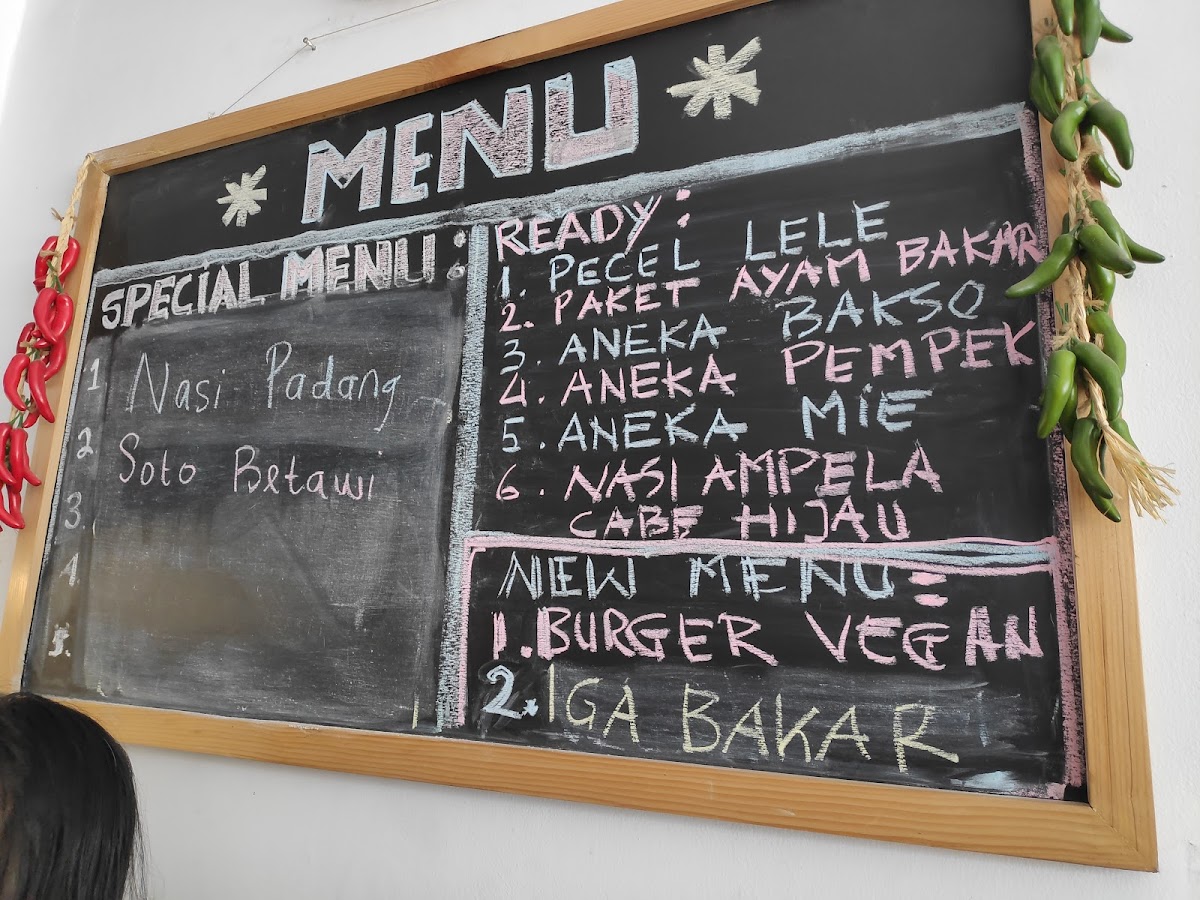 MENU
SPECIAL MENU:
1 Nasi Padang
2 Soto Betawi
3.
4
5.
READY:
1. PECEL LELE
2. PAKET AYAM BAKAR
3. ANEKA BAKSO
4. ANEKA PEMPEK
5. ANEKA MIE
6. NASI AMPELA
CABE HIJAU
NEW MENU:
1. BURGER VEGAN
2. IGA BAKAR